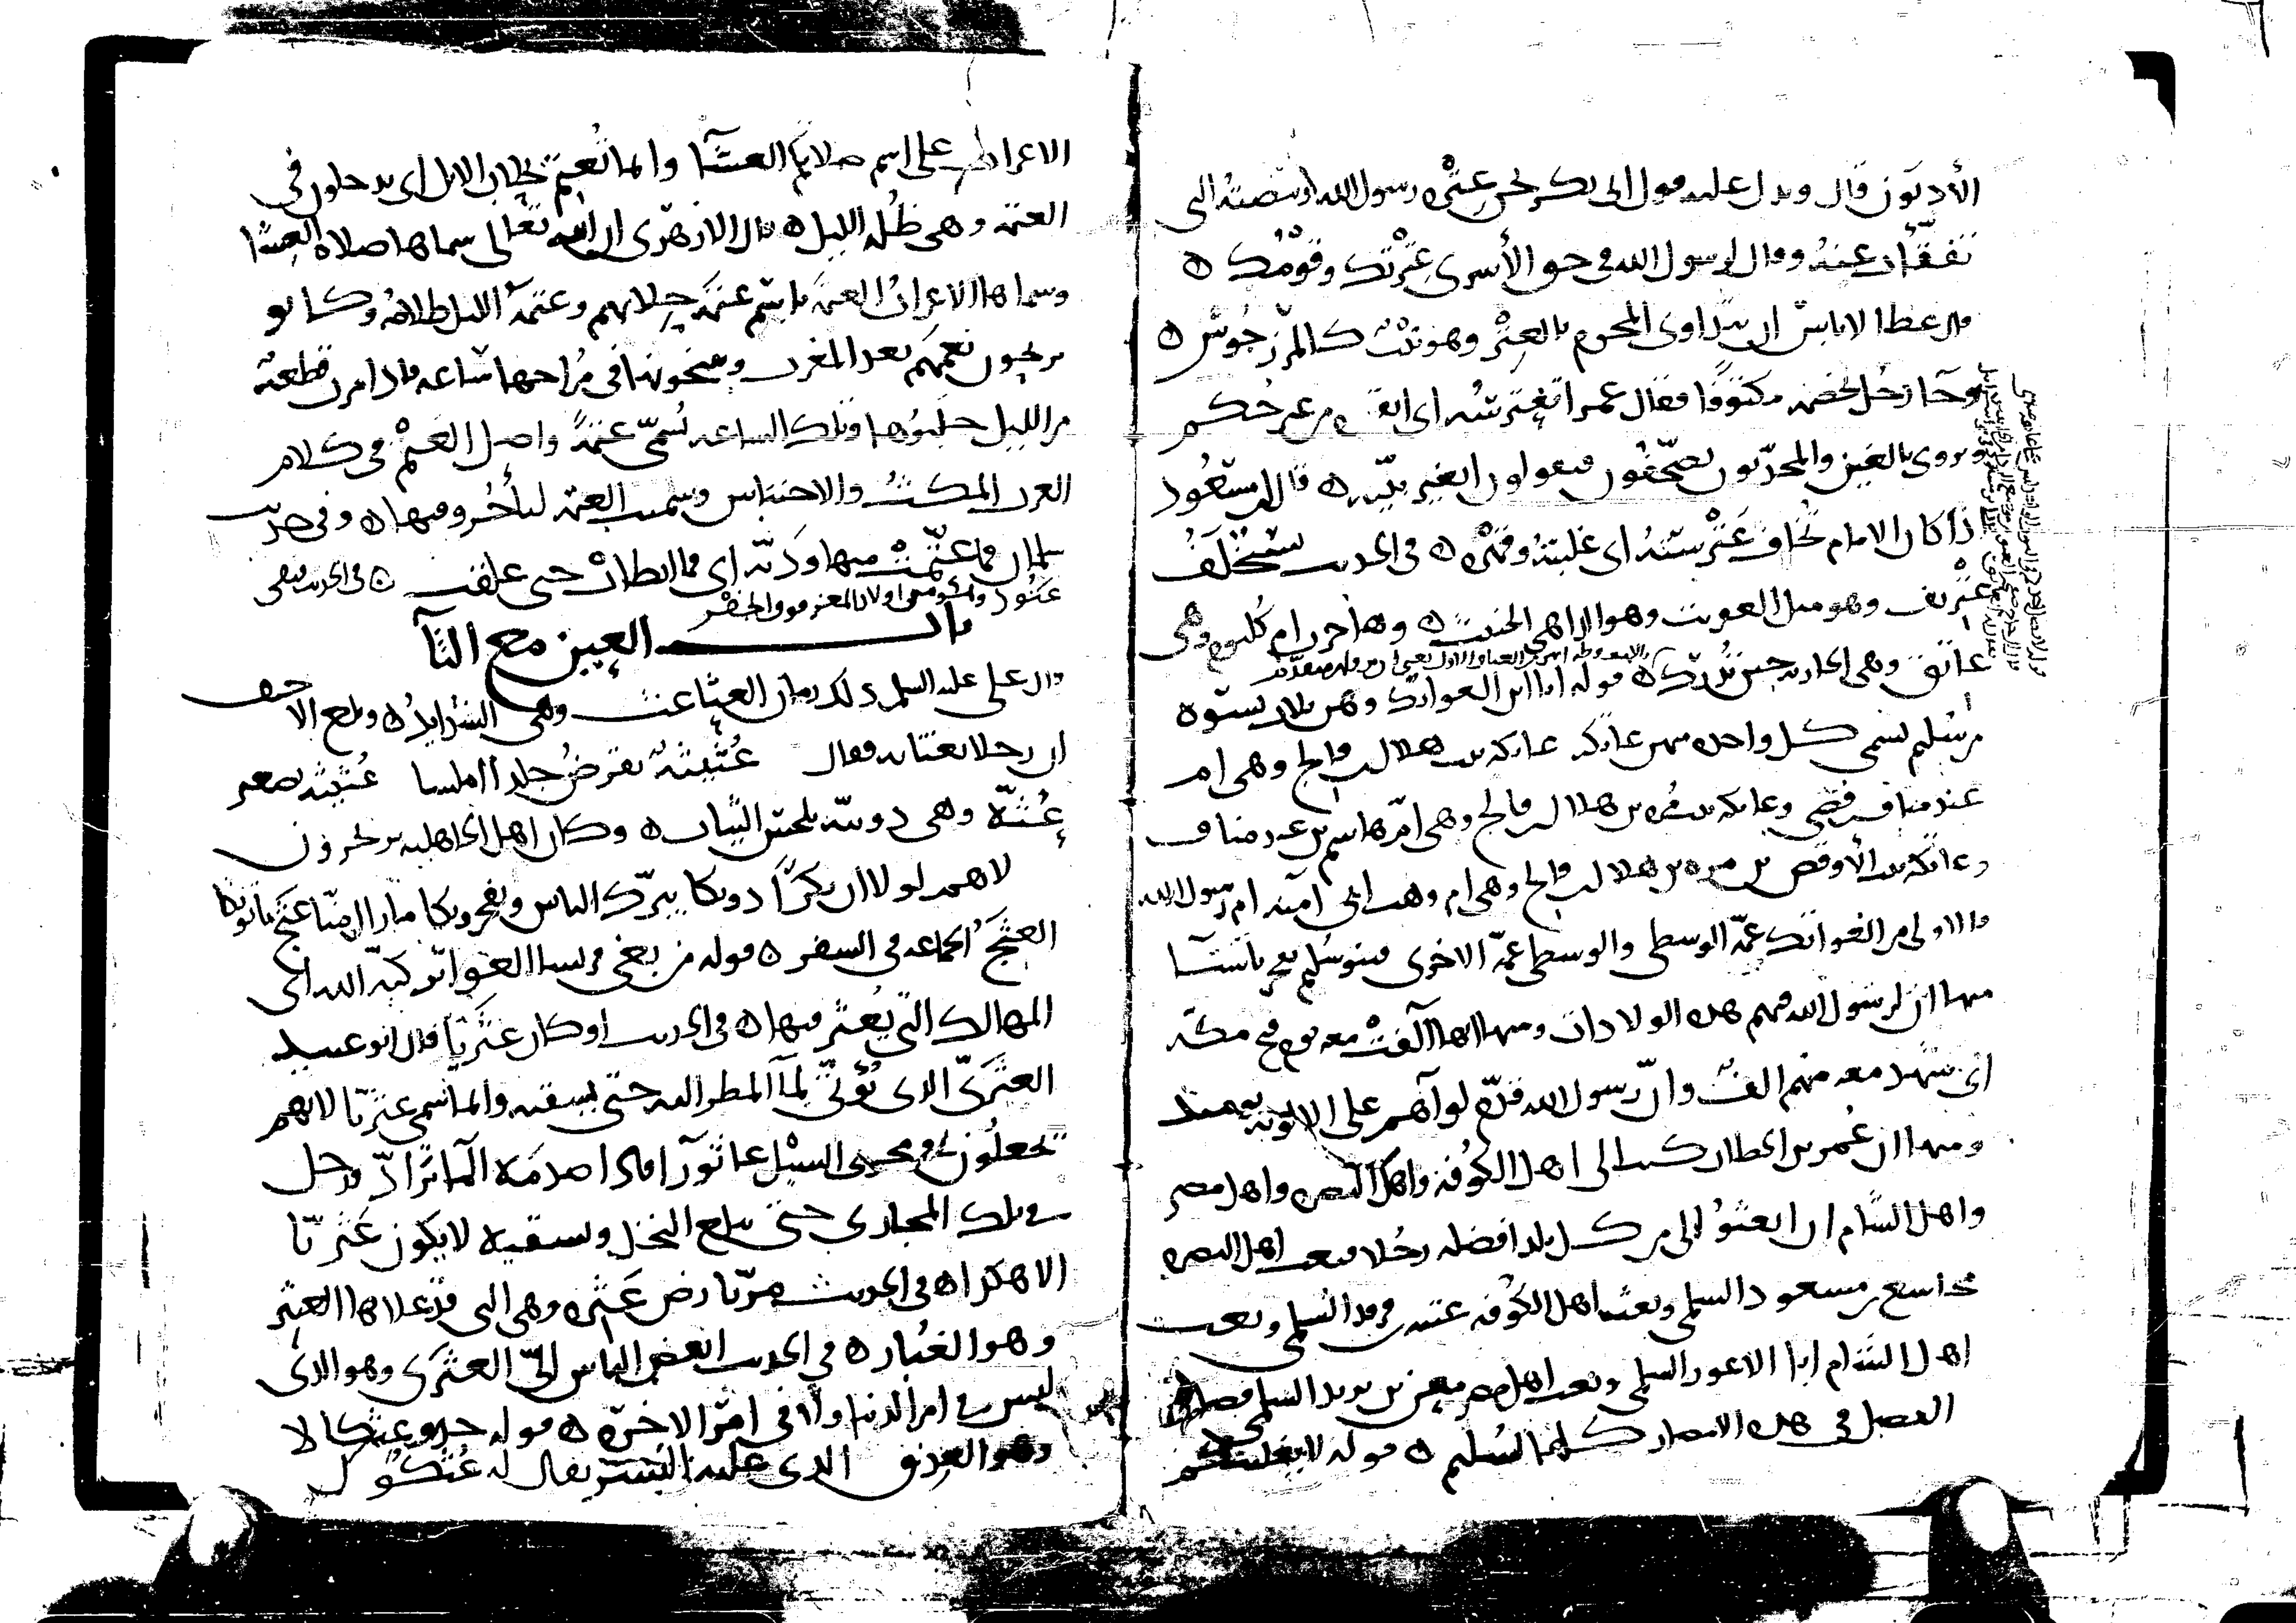 الأدنون قال ويدل عليه قول ابي بكر نحن عترة رسول الله وبيضته التي
تفقأت عنه وقال لرسول الله في حق الأسرى عترتك وقومك ه
قال عطا لا باس ان يتداوى المحرم بالعتر وهو نبت كالمرزجوش ه
وجا رجل مكتوفا فقال عمر
ويروى بالغين والمحدثون يصحفون فيقولون ه قال ابن مسعود
اذا كان الامام تخاف عترسته اى غلبته وقهره ه في الحديث يستخلف
عتريف وهو مثل العفريت وهو الداهي الخبيث ه وهاجرت ام كلثوم وهي
عاتق وهي الجارية حين تدرك ه قوله انا ابن العواتك وهن ثلاث نسوة
من سليم تسمى كل واحدة منهن عاتكة عاتكة بنت هلال بن فالج وهي ام
عبد مناف بن قصي وعاتكة بنت مرة بن هلال بن فالج وهي ام هاشم بن عبد مناف
وعاتكة بنت الأوقص بن مرة بن هلال بن فالج وهي ام وهب ابي آمنة ام رسول الله
فالاولى من العواتك عمة الوسطى والوسطى عمة الاخرى فبنو سليم تفخر باشيا
منها ان لرسول الله فيهم هذه الولادات ومنها انها آلفت معه يوم فتح مكة
اى شهد معه منهم الف وان رسول الله قدم لوآهم على الالوية يومئذ
ومنها ان عمر بن الخطاب كتب الى اهل الكوفة واهل البصره واهل مصر
واهل الشام ان ابعثوا الى من كل بلد افضله رجلا فبعث اهل البصره
مجاشع بن مسعود السلمي وبعث اهل الكوفة عتبة بن فرقد السلمي وبعث
اهل الشام ابا الاعور السلمي وبعث اهل مصر معن بن يزيد السلمي فصار
الفضل في هذه الامصار كلها لسليم ه قوله لا يغلبنكم
الاعراب على اسم صلاتكم العشا وانما تعتم بحلاب الابل اى يدخلون في
العتمة وهي ظلمة الليل ه قال الازهري ان الله تعالى سماها صلاة العشا
وسماها الاعراب العتمة باسم عتمة حلابهم وعتمة الليل ظلامه وكانو
يريحون نعمهم بعد المغرب وينيخونها في مراحها ساعة فاذا مرت قطعة
من الليل حلبوها وتلك الساعة تسمى عتمة واصل العتم في كلام
العرب المكث والاحتباس وسميت العتمة لتأخر وقتها ه وفي حديث
سلمان فما عتمت منها ودية اى فما ابطات حتى علقت ه في الحديث فبقي
عتود وهو من اولاد المعز فوق الجفر
باب العين مع الثآ
قال علي عليه السلم ذلك زمان العثاعث وهي الشدايد ه وبلغ الاحنف
ان رجلا يغتابه فقال عثيثة تقرض جلدا املسا عثيثة تصغير
عثة وهي دويبة تلحس الثياب ه وكان اهل الجاهلية يرتجزون
لاهم لولا ان بكرا دونكا يبرك الناس ويفجرونكا ما زال منا عثج ياتونكا
العثج الجماعة في السفر ه قوله من بغى قريشا العواثر كبه الله اى
المهالك التي يعثر فيها ه في الحديث او كان عثريا قال ابو عبيد
العثري الذى يؤتى بمآ المطر اليه حتى يسقيه وانما سمي عثريا لانهم
يجعلون في مجرى السيل عاثورآ فاذا صدمه المآ تراد فدخل
في تلك المجاري حتى يبلغ النخل ويسقيه لا يكون عثريا
الا هكذا ه في الحديث مر بارض عثرة وهي التي قد علاها العثير
وهو الغبار ه في الحديث ابغض الناس الي العثري وهو الذى
ليس في امر الدنيا ولا في امر الاخرة ه قوله خذو عثكالا
وهو العذق الذى عليه البسر يقال له عثكول